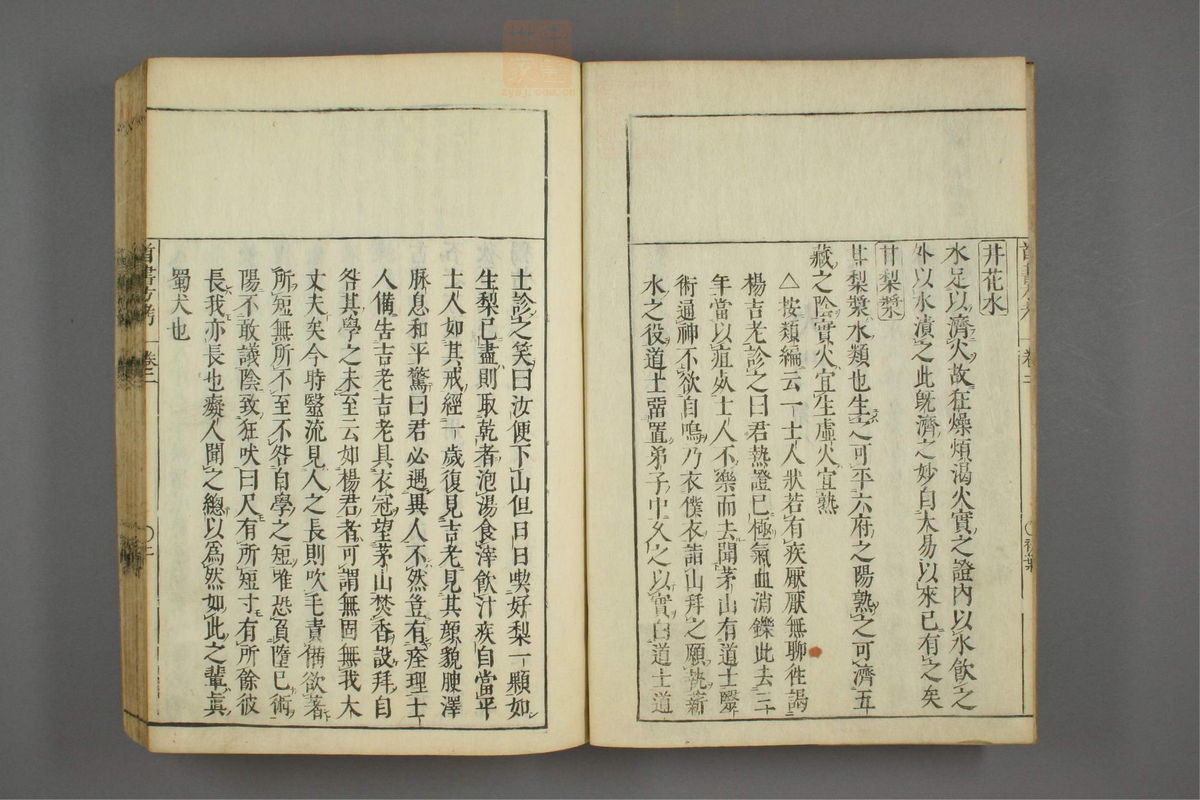 井花水
水足以濟火故狂燥煩渴火實之證內以水飲之
外以水漬之此既濟之妙自大易以來已有之矣
甘梨漿
甘梨漿水類也生之可平六府之陽熟之可濟五
藏之陰實火宜生虛火宜熟
△按類編云一士人狀若有疾厭厭無聊徃謁
楊吉老診之曰君熱證已極氣血消鑠此去三
年當以疽死士人不樂而去聞茅山有道士醫
術通神不欲自鳴乃衣僕衣詣山拜之願執薪
水之役道士畱置弟子中久之以實白道士道
士診之笑曰汝便下山但日日喫好梨一顆如
生梨已盡則取乾者泡湯食滓飲汁疾自當平
士人如其戒經一歲復見吉老見其顏貌腴澤
脉息和平驚曰君必遇異人不然豈有痊理士
人備告吉老吉老具衣冠望茅山焚香設拜自
咎其學之未至云如楊君者可謂無固無我大
丈夫矣今時毉流見人之長則吹毛責備欲著
所短無所不至不咎自學之短唯恐負墮已術
陽不敢議陰致狂吠曰尺有所短寸有所餘彼
長我亦長也癡人聞之總以爲然如此之輩眞
蜀犬也
卷三